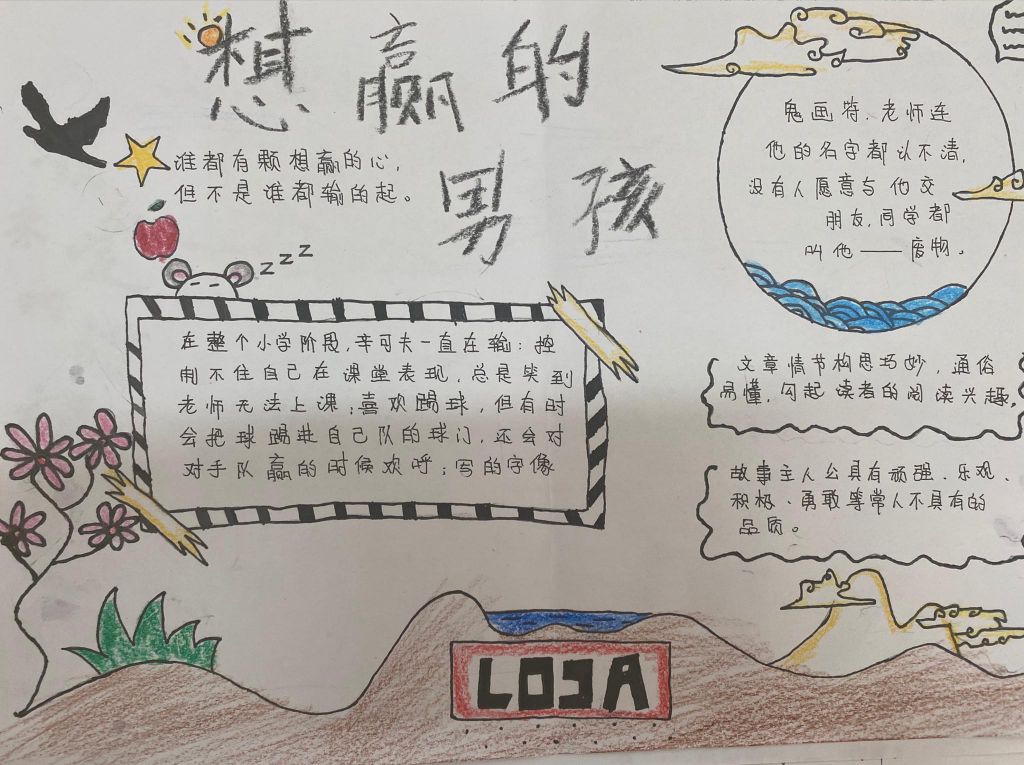 想赢的
男孩
谁都有颗想赢的心,
但不是谁都输的起。
zzz
在整个小学阶段,辛可夫一直在输:控
制不住自己在课堂表现,总是笑到
老师无法上课;喜欢踢球,但有时
会把球踢进自己队的球门,还会对
对手队赢的时候欢呼;写的字像
鬼画符、老师连
他的名字都认不清,
没有人愿意与他交
朋友,同学都
叫他——废物。
文章情节构思巧妙,通俗
易懂,勾起读者的阅读兴趣
故事主人公具有顽强、乐观、
积极、勇敢等常人不具有的
品质。
LOJA